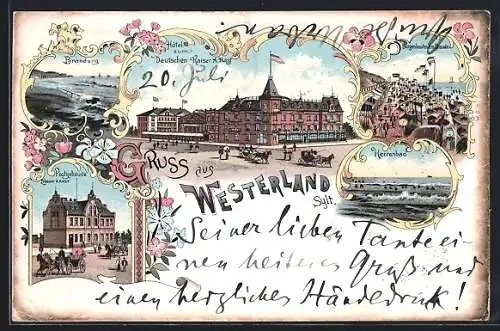 Brandung
Hôtel
zum
Deutschen Kaiser
20. Juli
Herrenbad
GRUSS aus
WESTERLAND
Sylt.
Seiner lieben Tante ei-
nen heiteren Gruß und
einen herzlichen Händedruck!